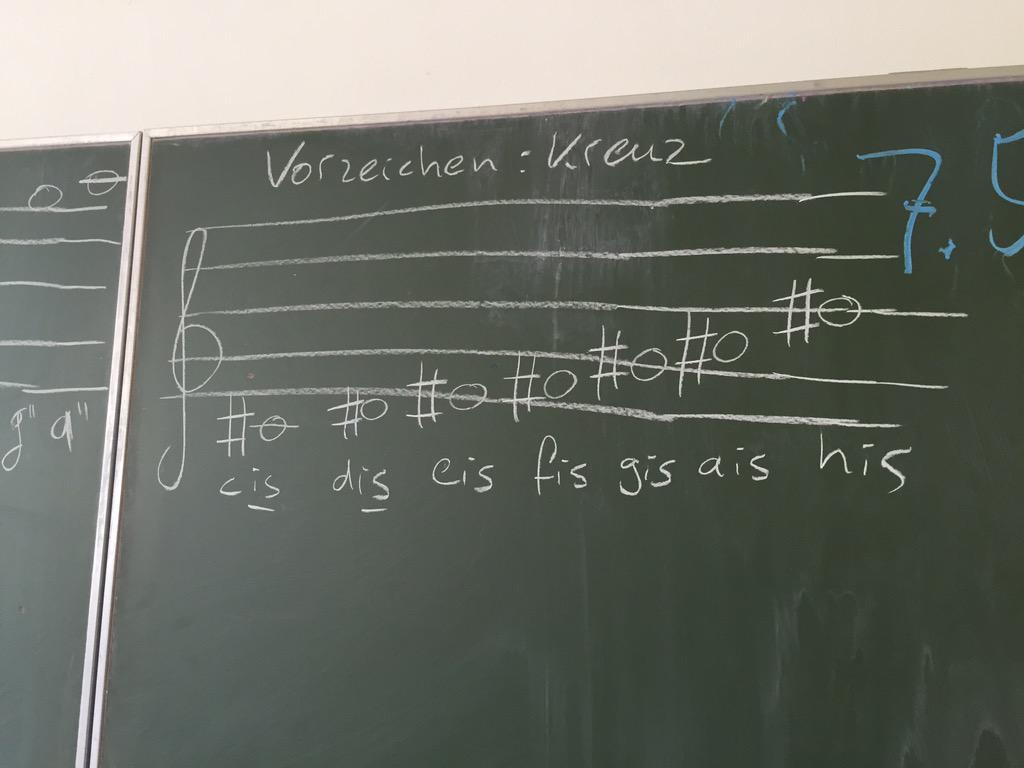 Vorzeichen: Kreuz
7.5
g" a"
cis dis eis fis gis ais his